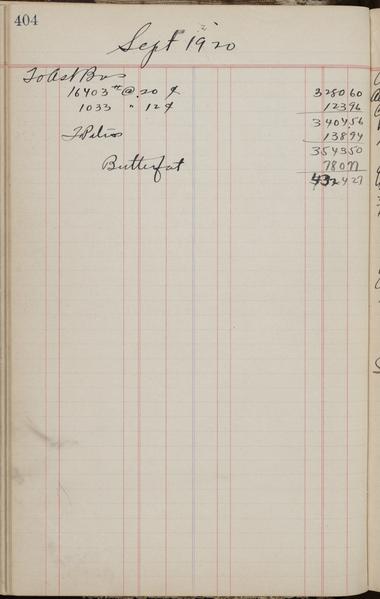 404
Sept 1920
To Ast Bros
16403 # @ .20 ¢ 3280 60
1033 " 12 ¢ 123 96
3404 56
138 94
3543 50
Butterfat 780 77
4324 27